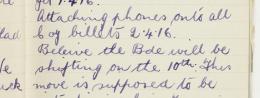 1.4.16.
Attaching phones onto all
6 of billets 2.4.16.
Beleive the Bde will be
shifting on the 10th. This
move is supposed to be